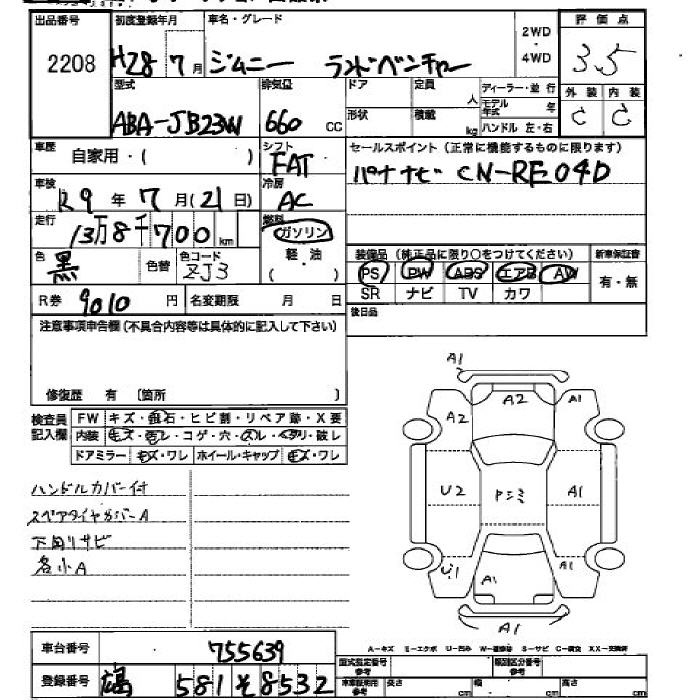 出品番号 初度登録年月 車名・グレード 2WD・4WD 評価点
2208 H28年7月 ジムニー ランドベンチャー 3.5
型式 排気量 ドア 定員 人 ディーラー・並行 外装 内装
ABA-JB23W 660 CC 形状 積載 kg モデル年式 年 C C
ハンドル 左・右
車歴 自家用・( ) シフト FAT セールスポイント(正常に機能するものに限ります)
車検 R9年7月(21日) 冷房 AC パナナビ CN-RE04D
走行 13万8千700km 燃料 ガソリン
軽・油
( )
装備品(純正品に限り○をつけてください) 新車保証書
色 黒 色替 色コード ZJ3 PS PW ABS エアB AW 有・無
R券 9010円 名変期限 月 日 SR ナビ TV カワ
後日品
注意事項申告欄(不具合内容等は具体的に記入して下さい)
修復歴 有 〔箇所 〕
検査員記入欄 FW キズ・飛石・ヒビ割・リペア跡・X要
内装 キズ・汚レ・コゲ・穴・スレ・ヘタリ・破レ
ドアミラー キズ・ワレ ホイール・キャップ キズ・ワレ
ハンドルカバー付
スペアタイヤカバーA
下回リサビ
各小A
A1
A2 A2 A1
U2 A1
U1 A1 A1
A1
車台番号 755639
登録番号 581 そ 8532
A-キズ E-エクボ U-凹み S-サビ C-腐食 XX-交換済
型式指定番号 参考 類別区分番号 参考
長さ cm 幅 cm 高さ cm